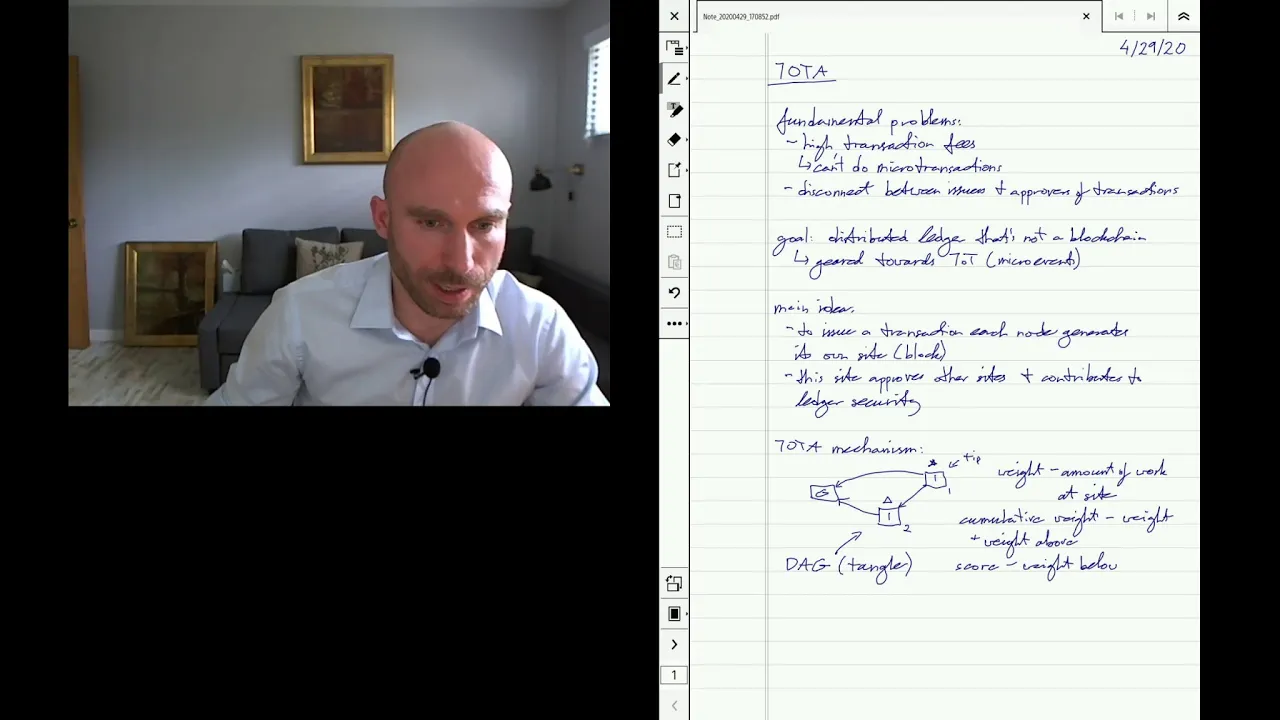 Note_20200429_170852.pdf
4/29/20
IOTA
fundamental problems:
- high transaction fees
↳ can't do microtransactions
- disconnect between issuers + approvers of transactions
goal: distributed ledger that's not a blockchain
↳ geared towards IoT (microevents)
main idea:
- to issue a transaction each node generates
its own site (block)
- this site approves other sites + contributes to
ledger security
IOTA mechanism:
tip
weight - amount of work
at site
G
1
1
1
2
cumulative weight - weight
+ weight above
DAG (tangle)
score - weight below
1